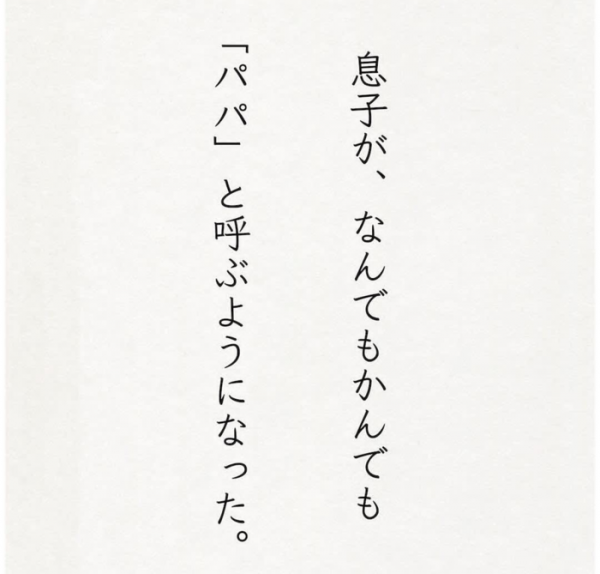 息子が、なんでもかんでも
「パパ」と呼ぶようになった。